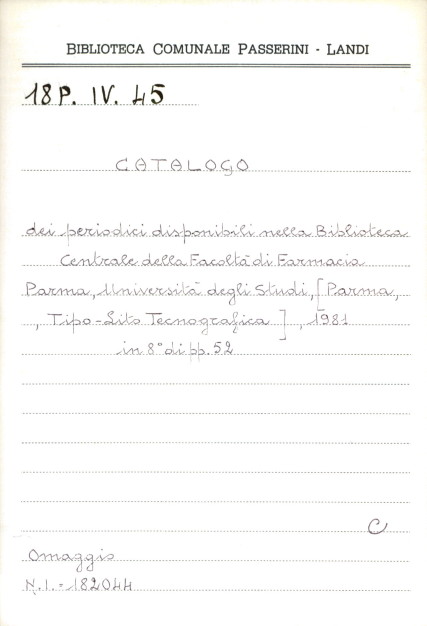 BIBLIOTECA COMUNALE PASSERINI - LANDI
18 P. IV. 45
CATALOGO
dei periodici disponibili nella Biblioteca
Centrale della Facoltà di Farmacia
Parma, Università degli Studi, [Parma,
, Tipo-Lito Tecnografica ] , 1981
in 8° di pp. 52
C
Omaggio
N. I. = 182044